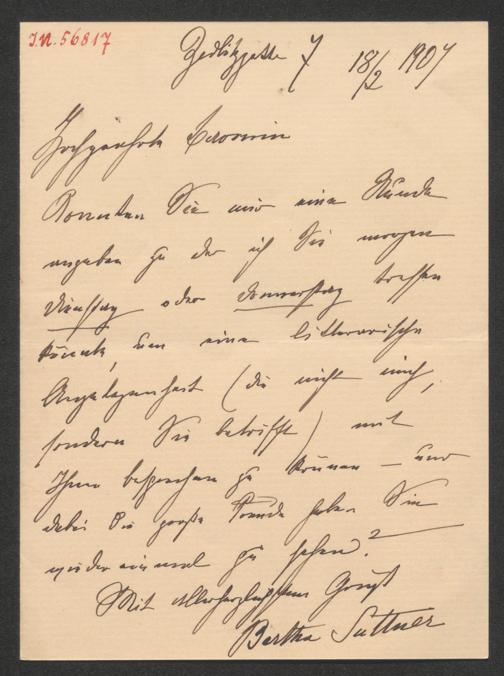 I.N. 56817
Zedlitzgasse 7 18/2 1907
Hochgeehrte Baronin
Könnten Sie mir eine Stunde
angeben zu der ich Sie morgen
Dienstag oder Donnerstag treffen
könnte, um eine litterarische
Angelegenheit (die nicht mich,
sondern Sie betrifft) mit
Ihnen besprechen zu können – und
dabei die große Freude haben Sie
wieder einmal zu sehen?
Mit allerherzlichstem Gruß
Bertha Suttner